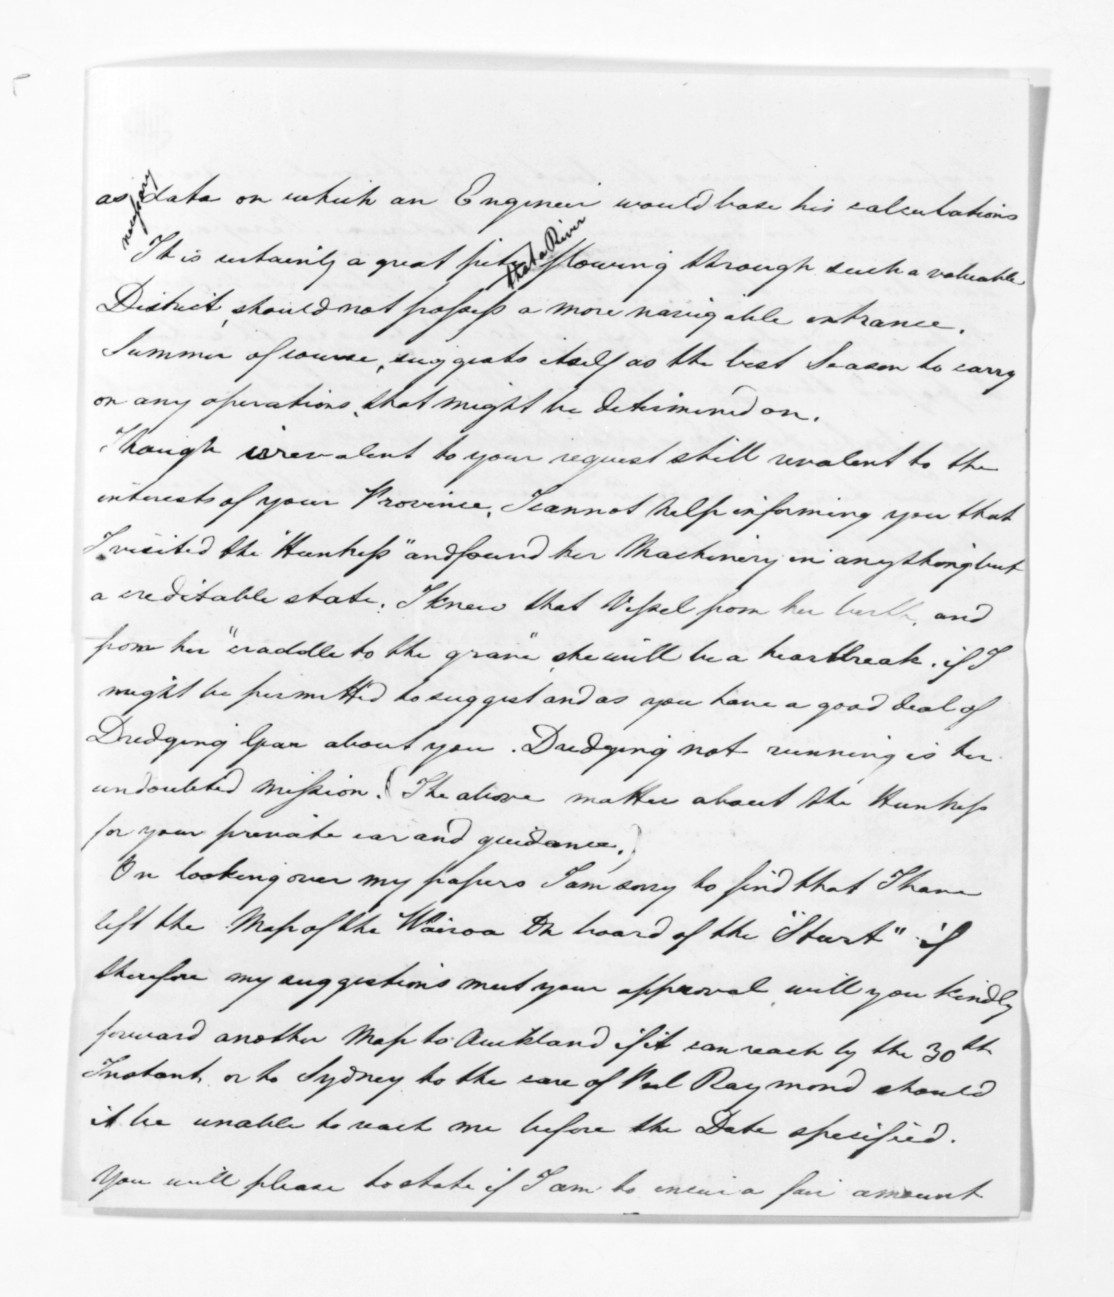 as necessary data on which an Engineer would base his calculations
It is certainly a great pity that a River flowing through such a valuable
District, should not possess a more navigable entrance.
Summer of course, suggests itself as the best Season to carry
on any operations, that might be determined on.
Though irrevalent to your request still revalent to the
interests of your Province, I cannot help informing you that
I visited the "Huntress" and found her Machinery in anything but
a creditable state. I knew that Vessel from her birth, and
from her "craddle to the grave" she will be a heartbreak. if I
might be permitted to suggest and as you have a good deal of
Dredging Gear about you. Dredging not running is her
undoubted mission. (The above matter about the Huntress
for your private ear and guidance.)
On looking over my papers I am sorry to find that I have
left the Map of the Wairoa on board of the "Sturt" if
therefore my suggestions meet your approval will you kindly
forward another Map to Auckland if it can reach by the 30th
Instant, or to Sydney to the care of Raymond should
it be unable to reach me before the Date spesified.
You will please to state if I am to incur a fair amount